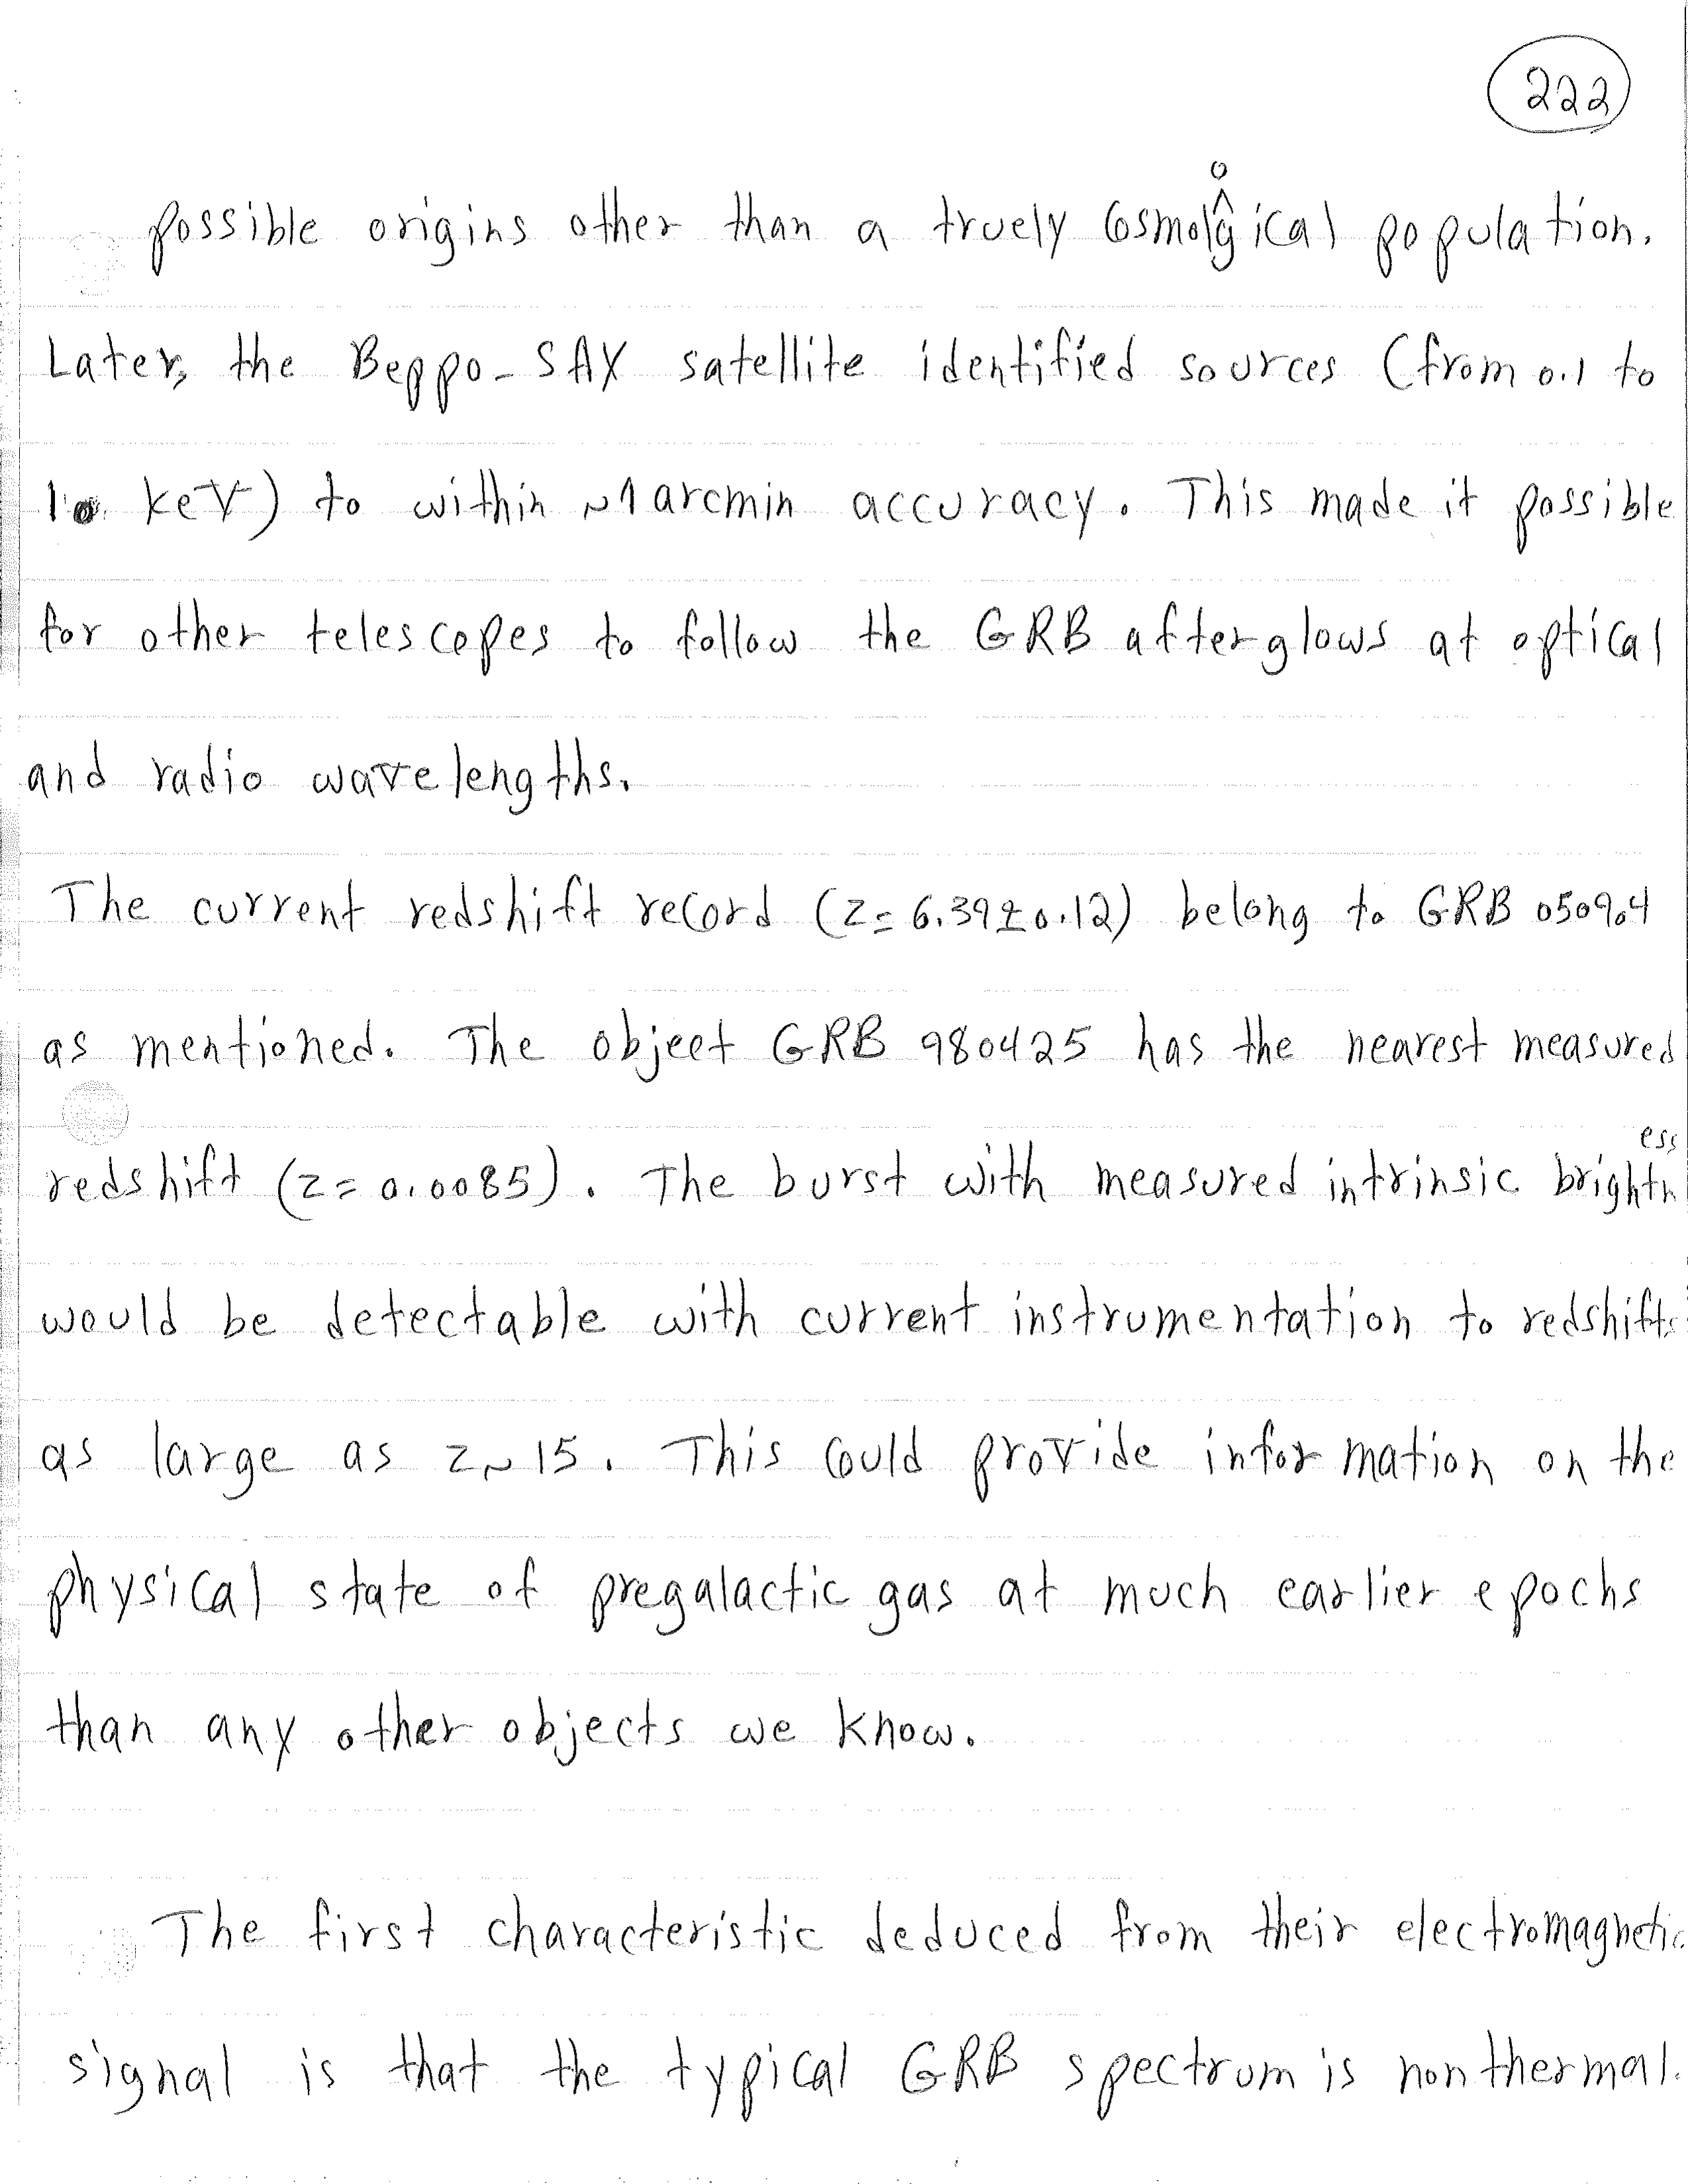 222
possible origins other than a truely cosmological population.
Later, the Beppo-SAX satellite identified sources (from 0.1 to
10 keV) to within ~1 arcmin accuracy. This made it possible
for other telescopes to follow the GRB afterglows at optical
and radio wavelengths.
The current redshift record (z=6.39±0.12) belong to GRB 050904
as mentioned. The object GRB 980425 has the nearest measured
redshift (z=0.0085). The burst with measured intrinsic brightness
would be detectable with current instrumentation to redshifts
as large as z~15. This could provide information on the
physical state of pregalactic gas at much earlier epochs
than any other objects we know.
The first characteristic deduced from their electromagnetic
signal is that the typical GRB spectrum is nonthermal.